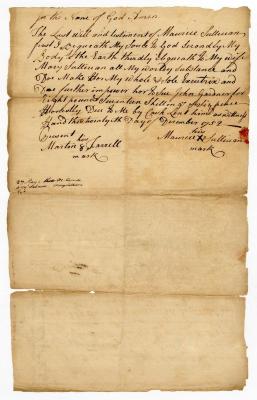 In the Name of God Amen
The Last will and testament of Maurice Sullivan
first I Bequeath My Soul to God Secondly My
Body to the Earth thirdly I bequeath to My wife
Mary Sullivan all My worldly Substance and
I Do Make Her My Whole & Sole Executrix and
I Do further impower her to Sue John Gardner for
Eight pounds Seventeen Shillings & Six pence
Due to Me by Cash Lent him as witness my
Hand this Day of December 1752
Present
his his
Martin & Farrell Maurice X Sullivan
mark mark